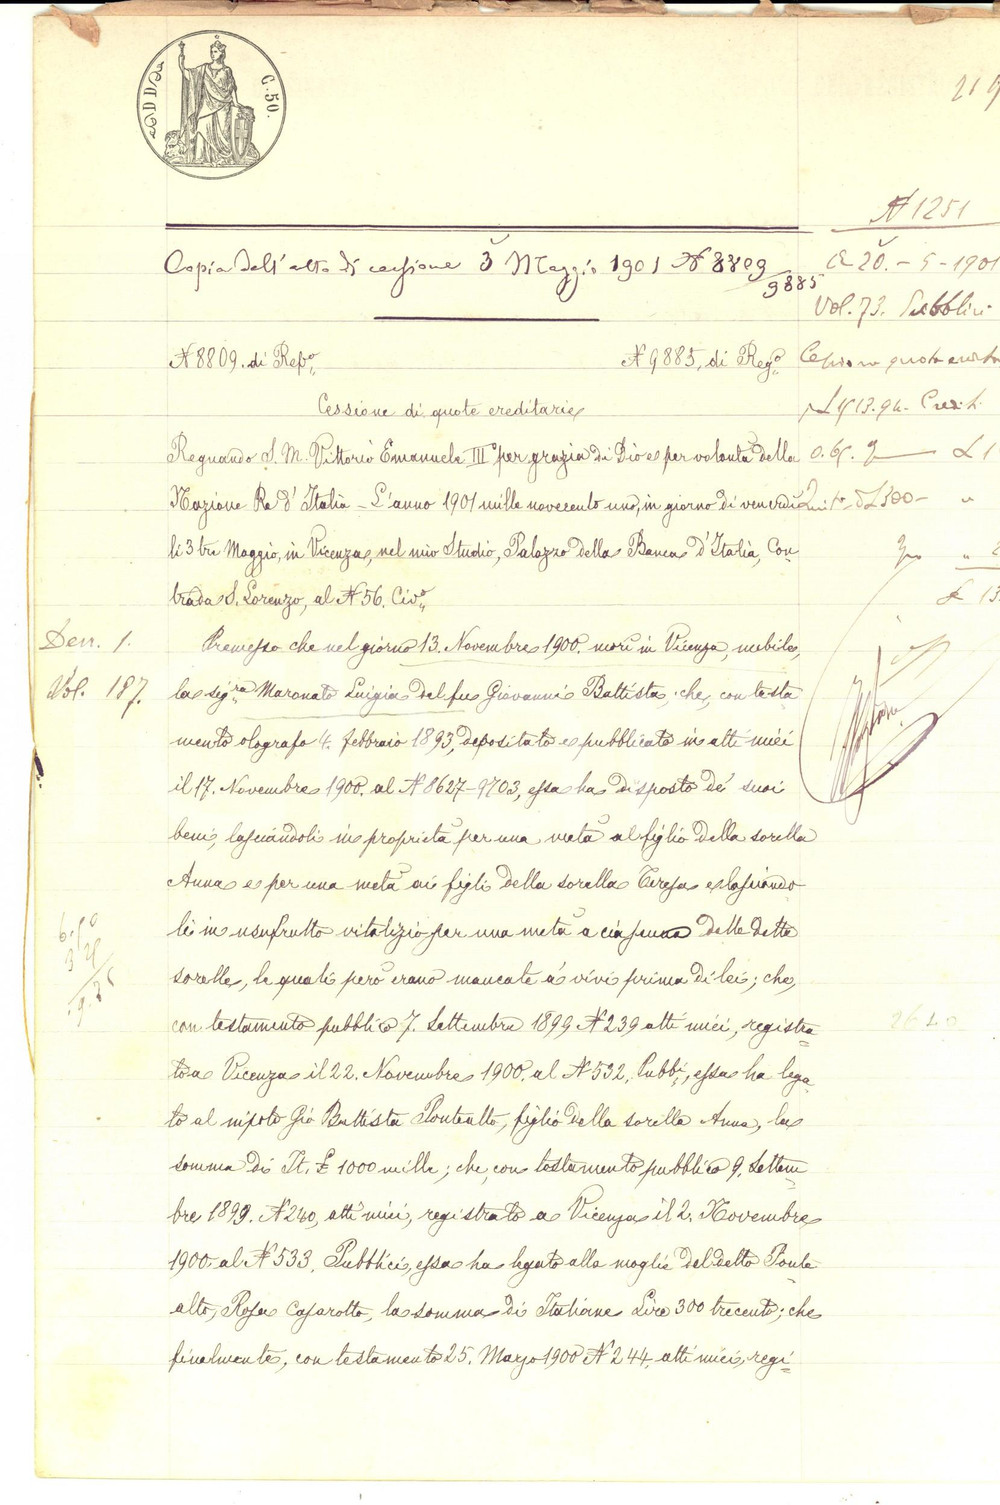 C. 50.
219
N 1251
Copia dell'atto di cessione 3 Maggio 1901 N 8809
9885
a 20. - 5 - 1901
Vol. 73. Pubblici
N 8809. di Repo.
N 9885, di Rego.
Cessione quota
Cessione di quote ereditarie
Regnando S. M. Vittorio Emanuele III per grazia di Dio e per volontà della
Nazione Re d'Italia - L'anno 1901 mille novecento uno, in giorno di venerdi
300 -
li 3 tre Maggio, in Vicenza, nel mio Studio, Palazzo della Banca d'Italia, Con
trada S. Lorenzo, al N 56. Civo.
Den. 1.
Premesso che nel giorno 13. Novembre 1900. morì in Vicenza, nubile,
Vol. 187.
la sigra Maronato Luigia del fu Giovanni Battista; che, con testa
mento olografo 4. febbraio 1893, depositato e pubblicato in atti miei
il 17. Novembre 1900. al N 8627-9703, essa ha disposto de' suoi
beni, lasciandoli in proprietà per una metà al figlio della sorella
Anna e per una metà ai figli della sorella Teresa e lasciando
li in usufrutto vitalizio per una metà a ciascuna delle dette
sorelle, le quali però erano mancate a' vivi prima di lei; che,
con testamento pubblico 7. Settembre 1899 N 239 atti miei, registra=
to a Vicenza il 22. Novembre 1900. al N 532. Pubbi, essa ha lega=
to al nipote Gio Battista Pontealto, figlio della sorella Anna, la
somma di It. £ 1000 mille; che, con testamento pubblico 9. Settem=
bre 1899. N 240, atti miei, registrato a Vicenza il 2. Novembre
1900. al N 533. Pubblici, essa ha legato alla moglie del detto Ponte=
alto, Rosa Casarotto, la somma di Italiane Lire 300 trecento; che
finalmente, con testamento 25. Marzo 1900 N 244. atti miei, regi=